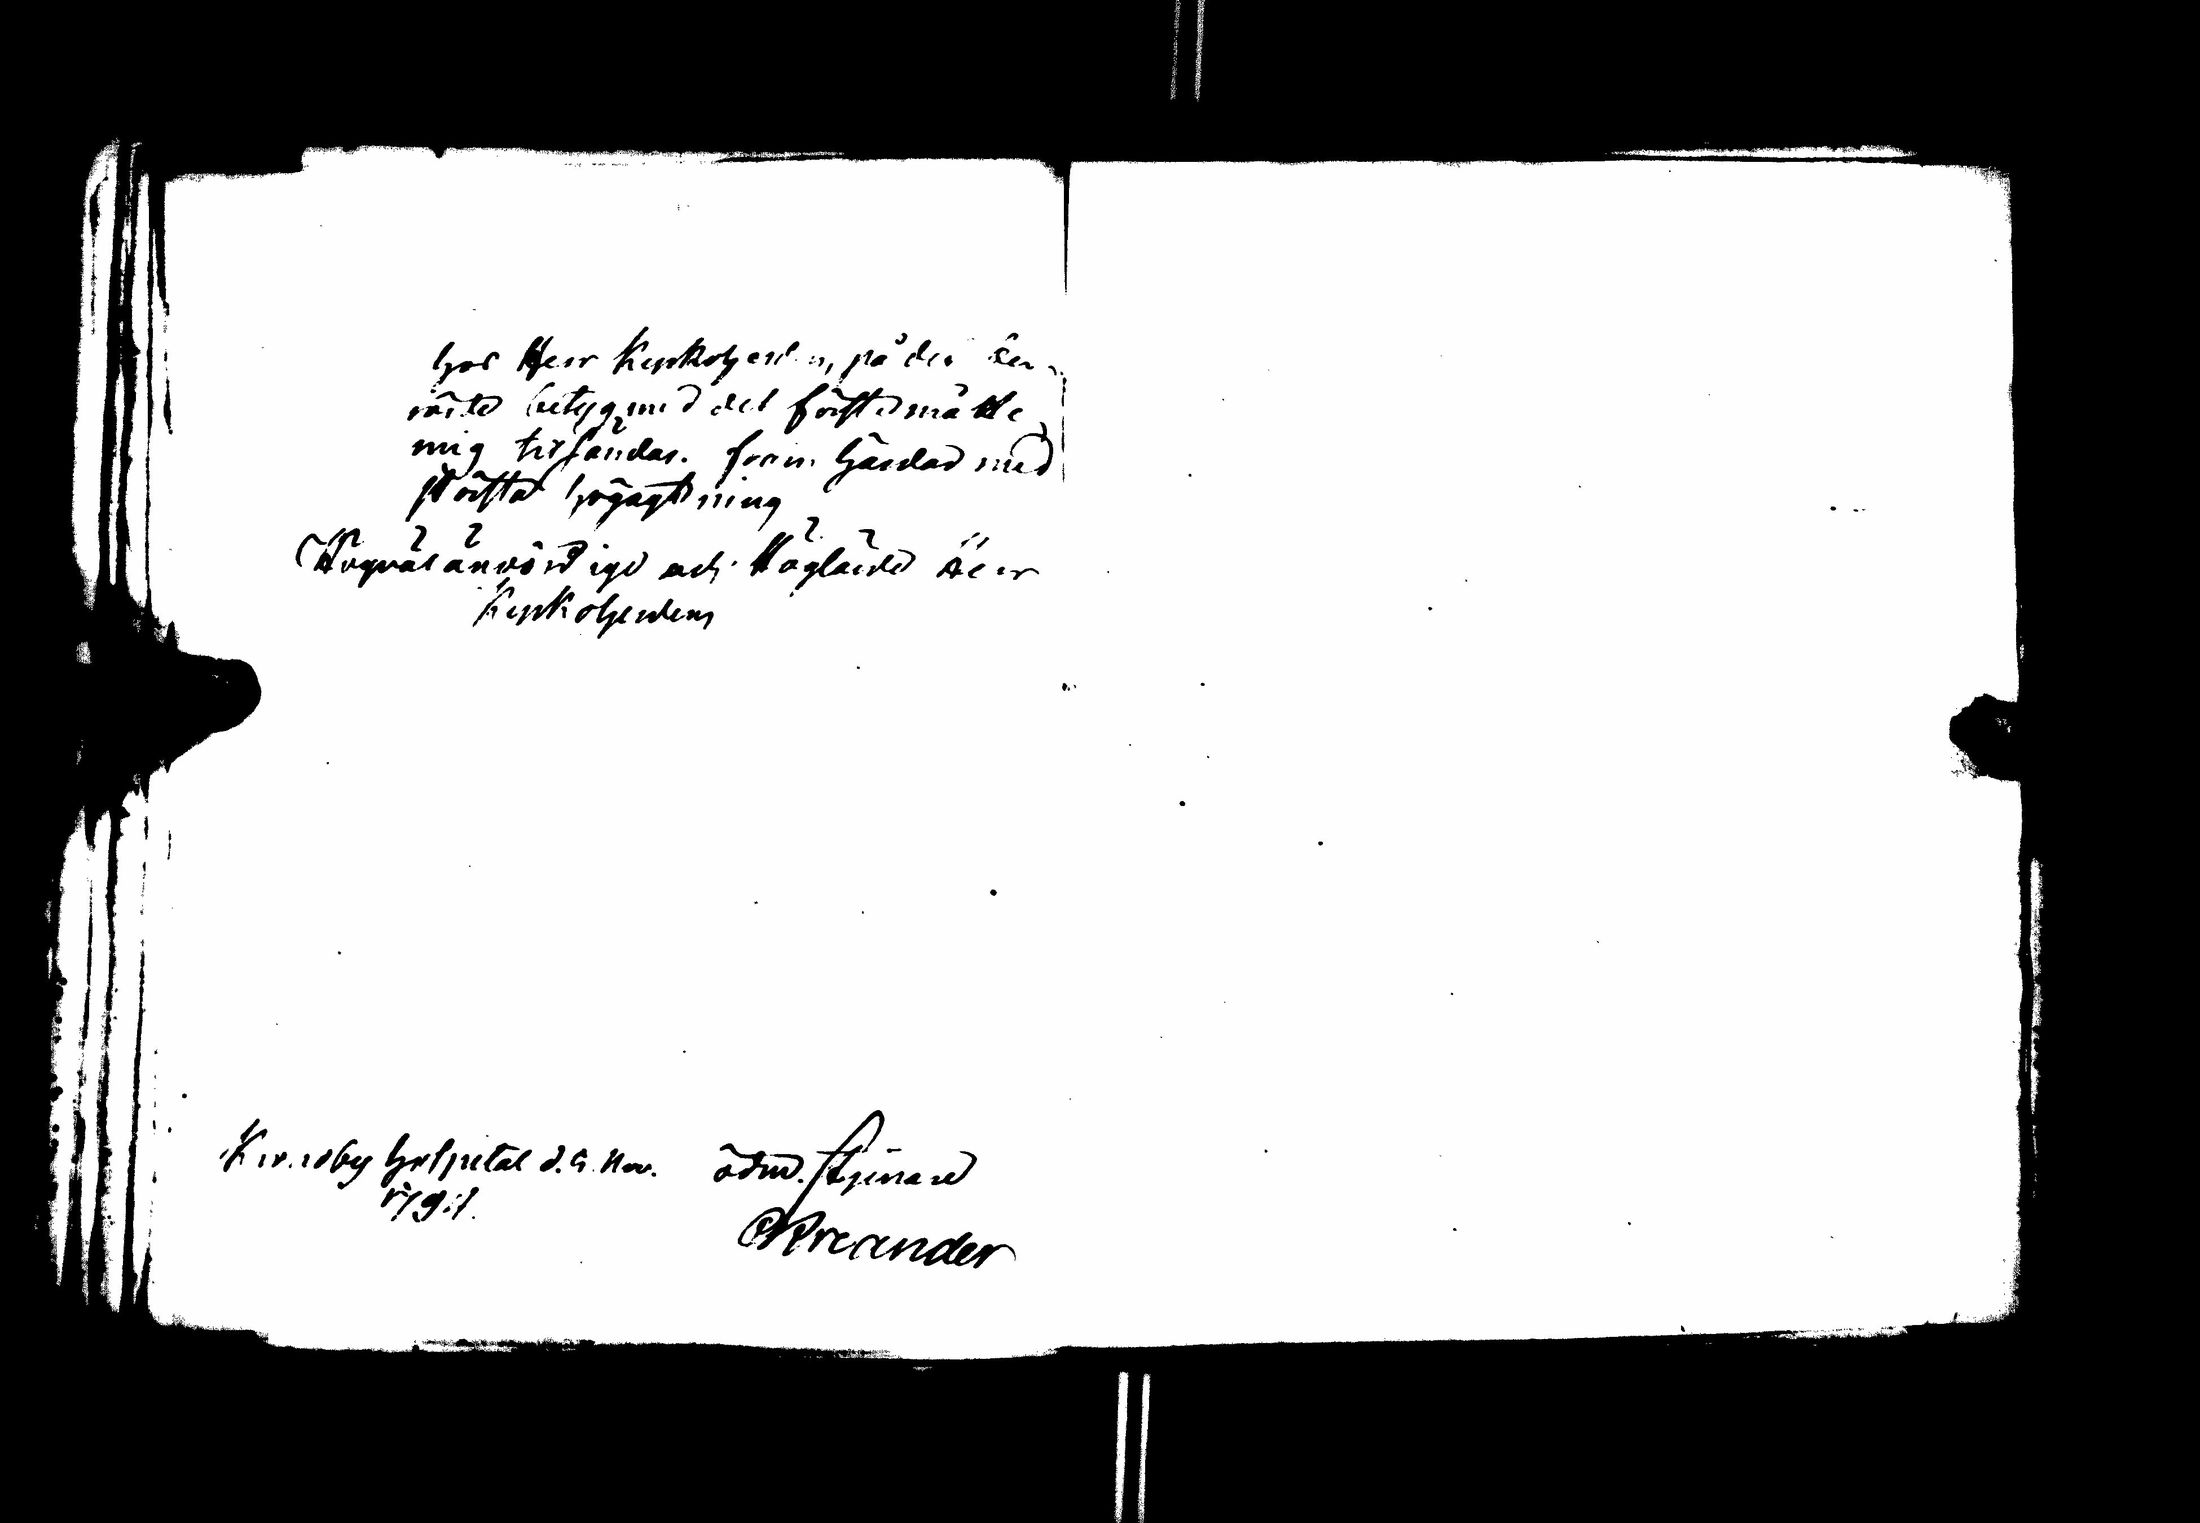 hos Herr Kyrkoherden, på det be-
rörde betyg med det första måtte
mig tilsändas. framhärdar med
största högagtning
Högvälärevördige och Höglärde Herr
Kyrkoherdens
Kronoby Hospital d. 9. Nov.
ödm. tjenare